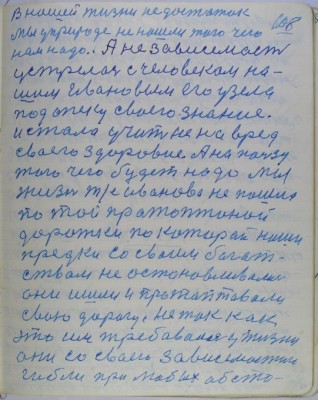 В нашей жизни недостаток
108
мы у природе не нашли того чего
нам надо. А независимость
устрелась с человеком на-
шим Ивановым его узела
под опеку своего знание.
и стала учит не на вред
своего здоровие А на пользу
того чего будет надо мы
жизн т/е Иванова не пошли
по той пратоптоной
дорожки по которай наши
предки со своим богат-
ством не остоновливались
они шли и протаптовали
свою дорогу. не так как
это им требавалос у жизни
они со своею зависимостию
гибли при любых обсто-